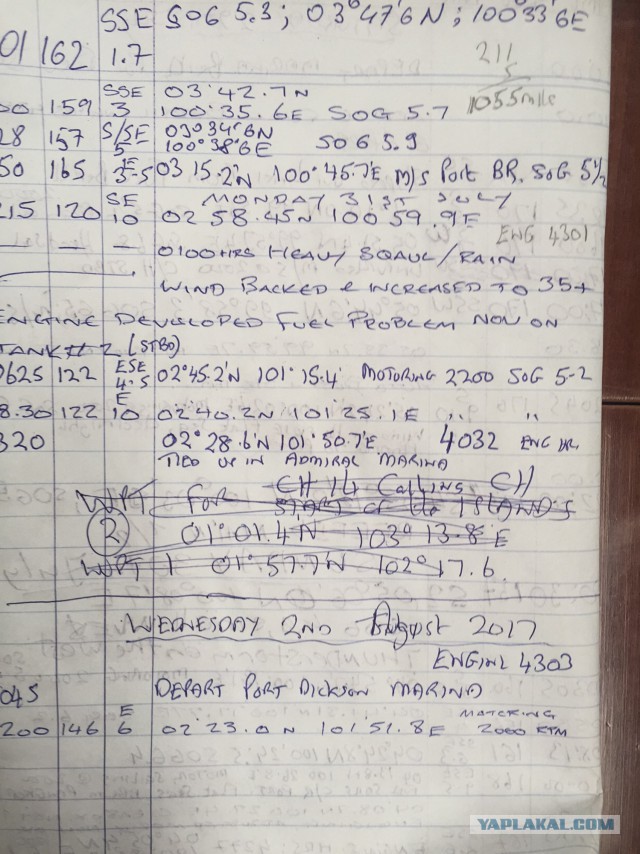 SSE SOG 5.3; 03°47'6N; 100°33'6E
01 162 1.7
211
5
1055 mile
SSE 03°42.7N
00 159 3 100°35.6E SOG 5.7
28 157 S/SE 03°34'6N
5 100°38'6E SOG 5.9
50 165 E 3-5 03 15.2'N 100°45.7'E M/S Port BR. SOG 5½
SE MONDAY 31ST JULY
215 120 10 02 58.45N 100 59.9E
ENG 4301
- 0100HRS HEAVY SQAUL/RAIN
WIND BACKED & INCREASED TO 35+
ENGINE DEVELOPED FUEL PROBLEM NOW ON
TANK # 2 (STBD)
0625 122 ESE 4.5 02°45.2'N 101°15.4' MOTORING 2200 SOG 5-2
E
8.30 122 10 02°40.2N 101°25.1E " "
320 02°28.6'N 101°50.7'E 4032 ENG HR.
TIED UP IN ADMIRAL MARINA
CH 14 Calling CH
WPT FOR START OF ISLANDS
2 01°01.4'N 103°13.8'E
WPT 1 01°57.7'N 102°17.6
WEDNESDAY 2ND August 2017
ENGINE 4303
045 DEPART PORT DICKSON MARINA
E MOTORING
200 146 6 02°23.0N 101°51.8E 2000 RPM
YAPLAKAL.COM